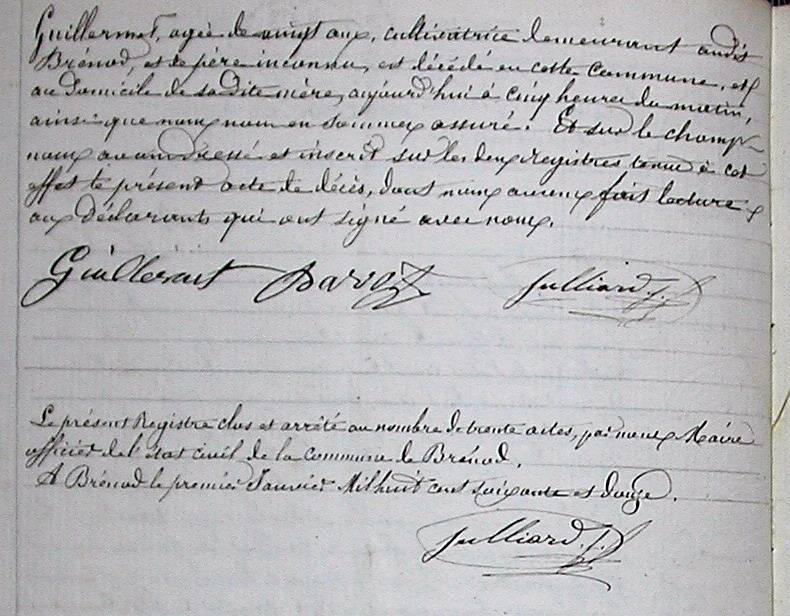 Guillermet, agée de vingt ans, cultivatrice demeurant audit
Brénod, et de père inconnu, est décédé en cette commune, et
au domicile de sadite mère, aujourd'hui à cinq heures du matin,
ainsi que nous nous en sommes assuré. Et sur le champ
nous avons dressé et inscrit sur les deux registres tenus à cet
effet le présent acte de décès, dont nous avons fais lecture
aux déclarants qui ont signé avec nous.
Guillermet Barxx Julliard. J.
Le présent Registre clos et arrêté au nombre de trente actes, par nous Maire
officier de l'état civil de la commune de Brénod.
A Brénod le premier Janvier Mil huit cent soixante et douze.
Julliard. J.